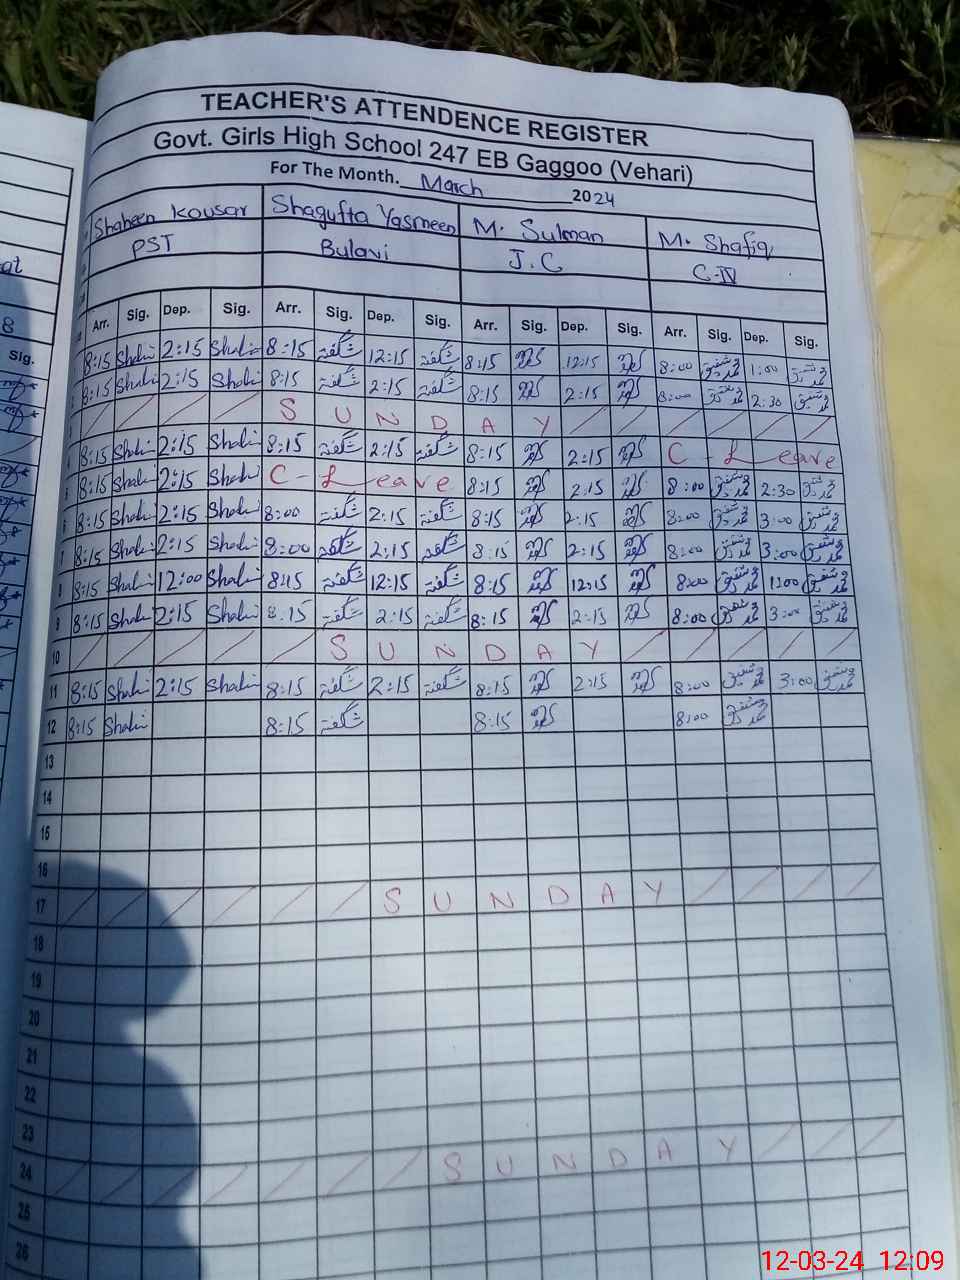 TEACHER'S ATTENDENCE REGISTER
Govt. Girls High School 247 EB Gaggoo (Vehari)
For The Month. March 2024
Shaheen Kousar Shagufta Yasmeen M. Sulman M. Shafiq
PST Bulavi J.C C-IV
Arr. Sig. Dep. Sig. Arr. Sig. Dep. Sig. Arr. Sig. Dep. Sig. Arr. Sig. Dep. Sig.
8:15 Shahi 2:15 Shahi 8:15 شگفتہ 12:15 شگفتہ 8:15 12:15 8:00 محمد شفیق 1:00 محمد شفیق
2 8:15 Shahi 2:15 Shahi 8:15 شگفتہ 2:15 شگفتہ 8:15 2:15 8:00 محمد شفیق 2:30 محمد شفیق
SUNDAY
4 8:15 Shahi 2:15 Shahi 8:15 شگفتہ 2:15 شگفتہ 8:15 2:15 C-Leave
5 8:15 Shahi 2:15 Shahi C-Leave 8:15 2:15 8:00 محمد شفیق 2:30 محمد شفیق
6 8:15 Shahi 2:15 Shahi 8:00 شگفتہ 2:15 شگفتہ 8:15 2:15 8:00 محمد شفیق 3:00 محمد شفیق
7 8:15 Shahi 2:15 Shahi 8:00 شگفتہ 2:15 شگفتہ 8:15 2:15 8:00 محمد شفیق 3:00 محمد شفیق
8 8:15 Shahi 12:00 Shahi 8:15 شگفتہ 12:15 شگفتہ 8:15 12:15 8:00 محمد شفیق 1:00 محمد شفیق
9 8:15 Shahi 2:15 Shahi 8:15 شگفتہ 2:15 شگفتہ 8:15 2:15 8:00 محمد شفیق 3:00 محمد شفیق
10 SUNDAY
11 8:15 Shahi 2:15 Shahi 8:15 شگفتہ 2:15 شگفتہ 8:15 2:15 8:00 محمد شفیق 3:00 محمد شفیق
12 8:15 Shahi 8:15 شگفتہ 8:15 8:00 محمد شفیق
13
14
15
16
17 SUNDAY
18
19
20
21
22
23
24 SUNDAY
25
26
at
8
Sig.
12-03-24 12:09